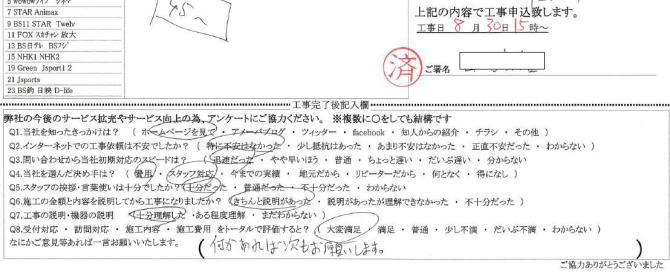 7 STAR Animax
9 BS11 STAR Twelv
11 FOX スカチャン 放大
13 BS日テレ BSフジ
15 NHK1 NHK2
19 Green Jsport1 2
21 Jsports
23 BS釣 日映 D-life
上記の内容で工事申込致します。
工事日 8 月 30日 15時～
済
ご署名
工事完了後記入欄
弊社の今後のサービス拡充やサービス向上の為、アンケートにご協力ください。 ※複数に○をしても結構です
Q1.当社を知ったきっかけは？ （ ホームページを見て ・ アメーバブログ ・ ツィッター ・ facebook ・ 知人からの紹介 ・ チラシ ・ その他 ）
Q2.インターネットでの工事依頼は不安でしたか？ （ 特に不安はなかった ・ 少し抵抗はあった ・ あまり不安はなかった ・ 正直不安だった ・ わからない ）
Q3.問い合わせから当社初期対応のスピードは？ （ 迅速だった ・ やや早いほう ・ 普通 ・ ちょっと遅い ・ だいぶ遅い ・ 分からない
Q4.当社を選んだ決め手は？ （ 費用 ・ スタッフ対応 ・ 今までの実績 ・ 地元だから ・ リピーターだから ・ 何となく ・ 得になし ）
Q5.スタッフの挨拶・言葉使いは十分でしたか？（ 十分だった ・ 普通だった ・ 不十分だった ・ わからない
Q6.施工の金額と内容を説明してから工事になりましたか？ （ きちんと説明があった ・ 説明があったが理解できなかった ・ 不十分だった ）
Q7.工事の説明・機器の説明 （ 十分理解した ・ ある程度理解 ・ まだわからない ）
Q8.受付対応 ・ 訪問対応 ・ 施工内容 ・ 施工費用 をトータルで評価すると？ （ 大変満足 ・ 満足 ・ 普通 ・ 少し不満 ・ だいぶ不満 ・ わからない ）
なにかご意見等あれば一言お願いいたします。
（ 何かあれば次もお願いします。
ご協力ありがとうございました